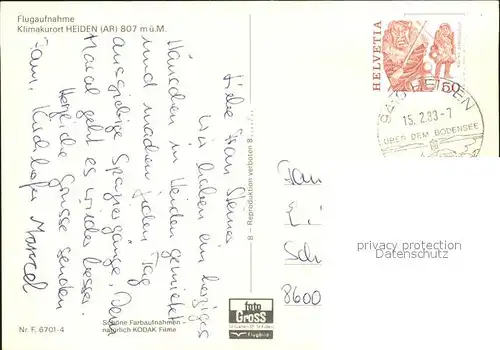 Flugaufnahme
Klimakurort HEIDEN (AR) 807 m ü. M.
Liebe Frau Steiner
Wir haben ein herziges
Häuschen in Heiden gemietet
und machen jeden Tag
ausgiebige Spaziergänge. Denn
Marcel geht es wieder besser.
Herzliche Grüsse senden
Fam. Marcel
B – Reproduktion verboten B
HELVETIA
50
HEIDEN
15.2.83-7
ÜBER DEM BODENSEE
Fam
Sch
8600
privacy protection
Datenschutz
foto
GROSS
Flugbild
Nr. F. 6701-4
Schöne Farbaufnahmen –
natürlich KODAK Filme